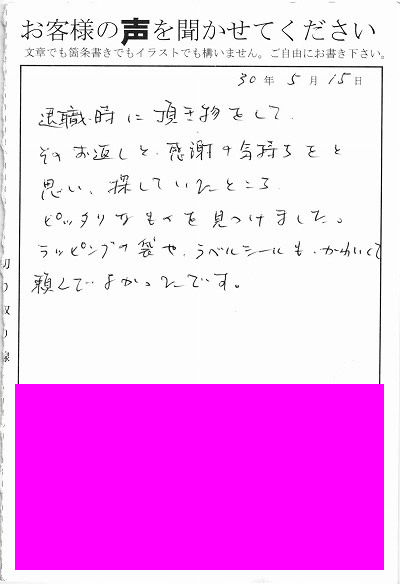 お客様の声を聞かせてください
文章でも箇条書きでもイラストでも構いません。ご自由にお書き下さい。
30年5月15日
退職時に頂き物をして、
そのお返しと、感謝の気持ちをと
思い、探していたところ、
ピッタリなものを見つけました。
ラッピングの袋や、ラベルシールも、かわいくて
頼んでよかったです。
切り取り線